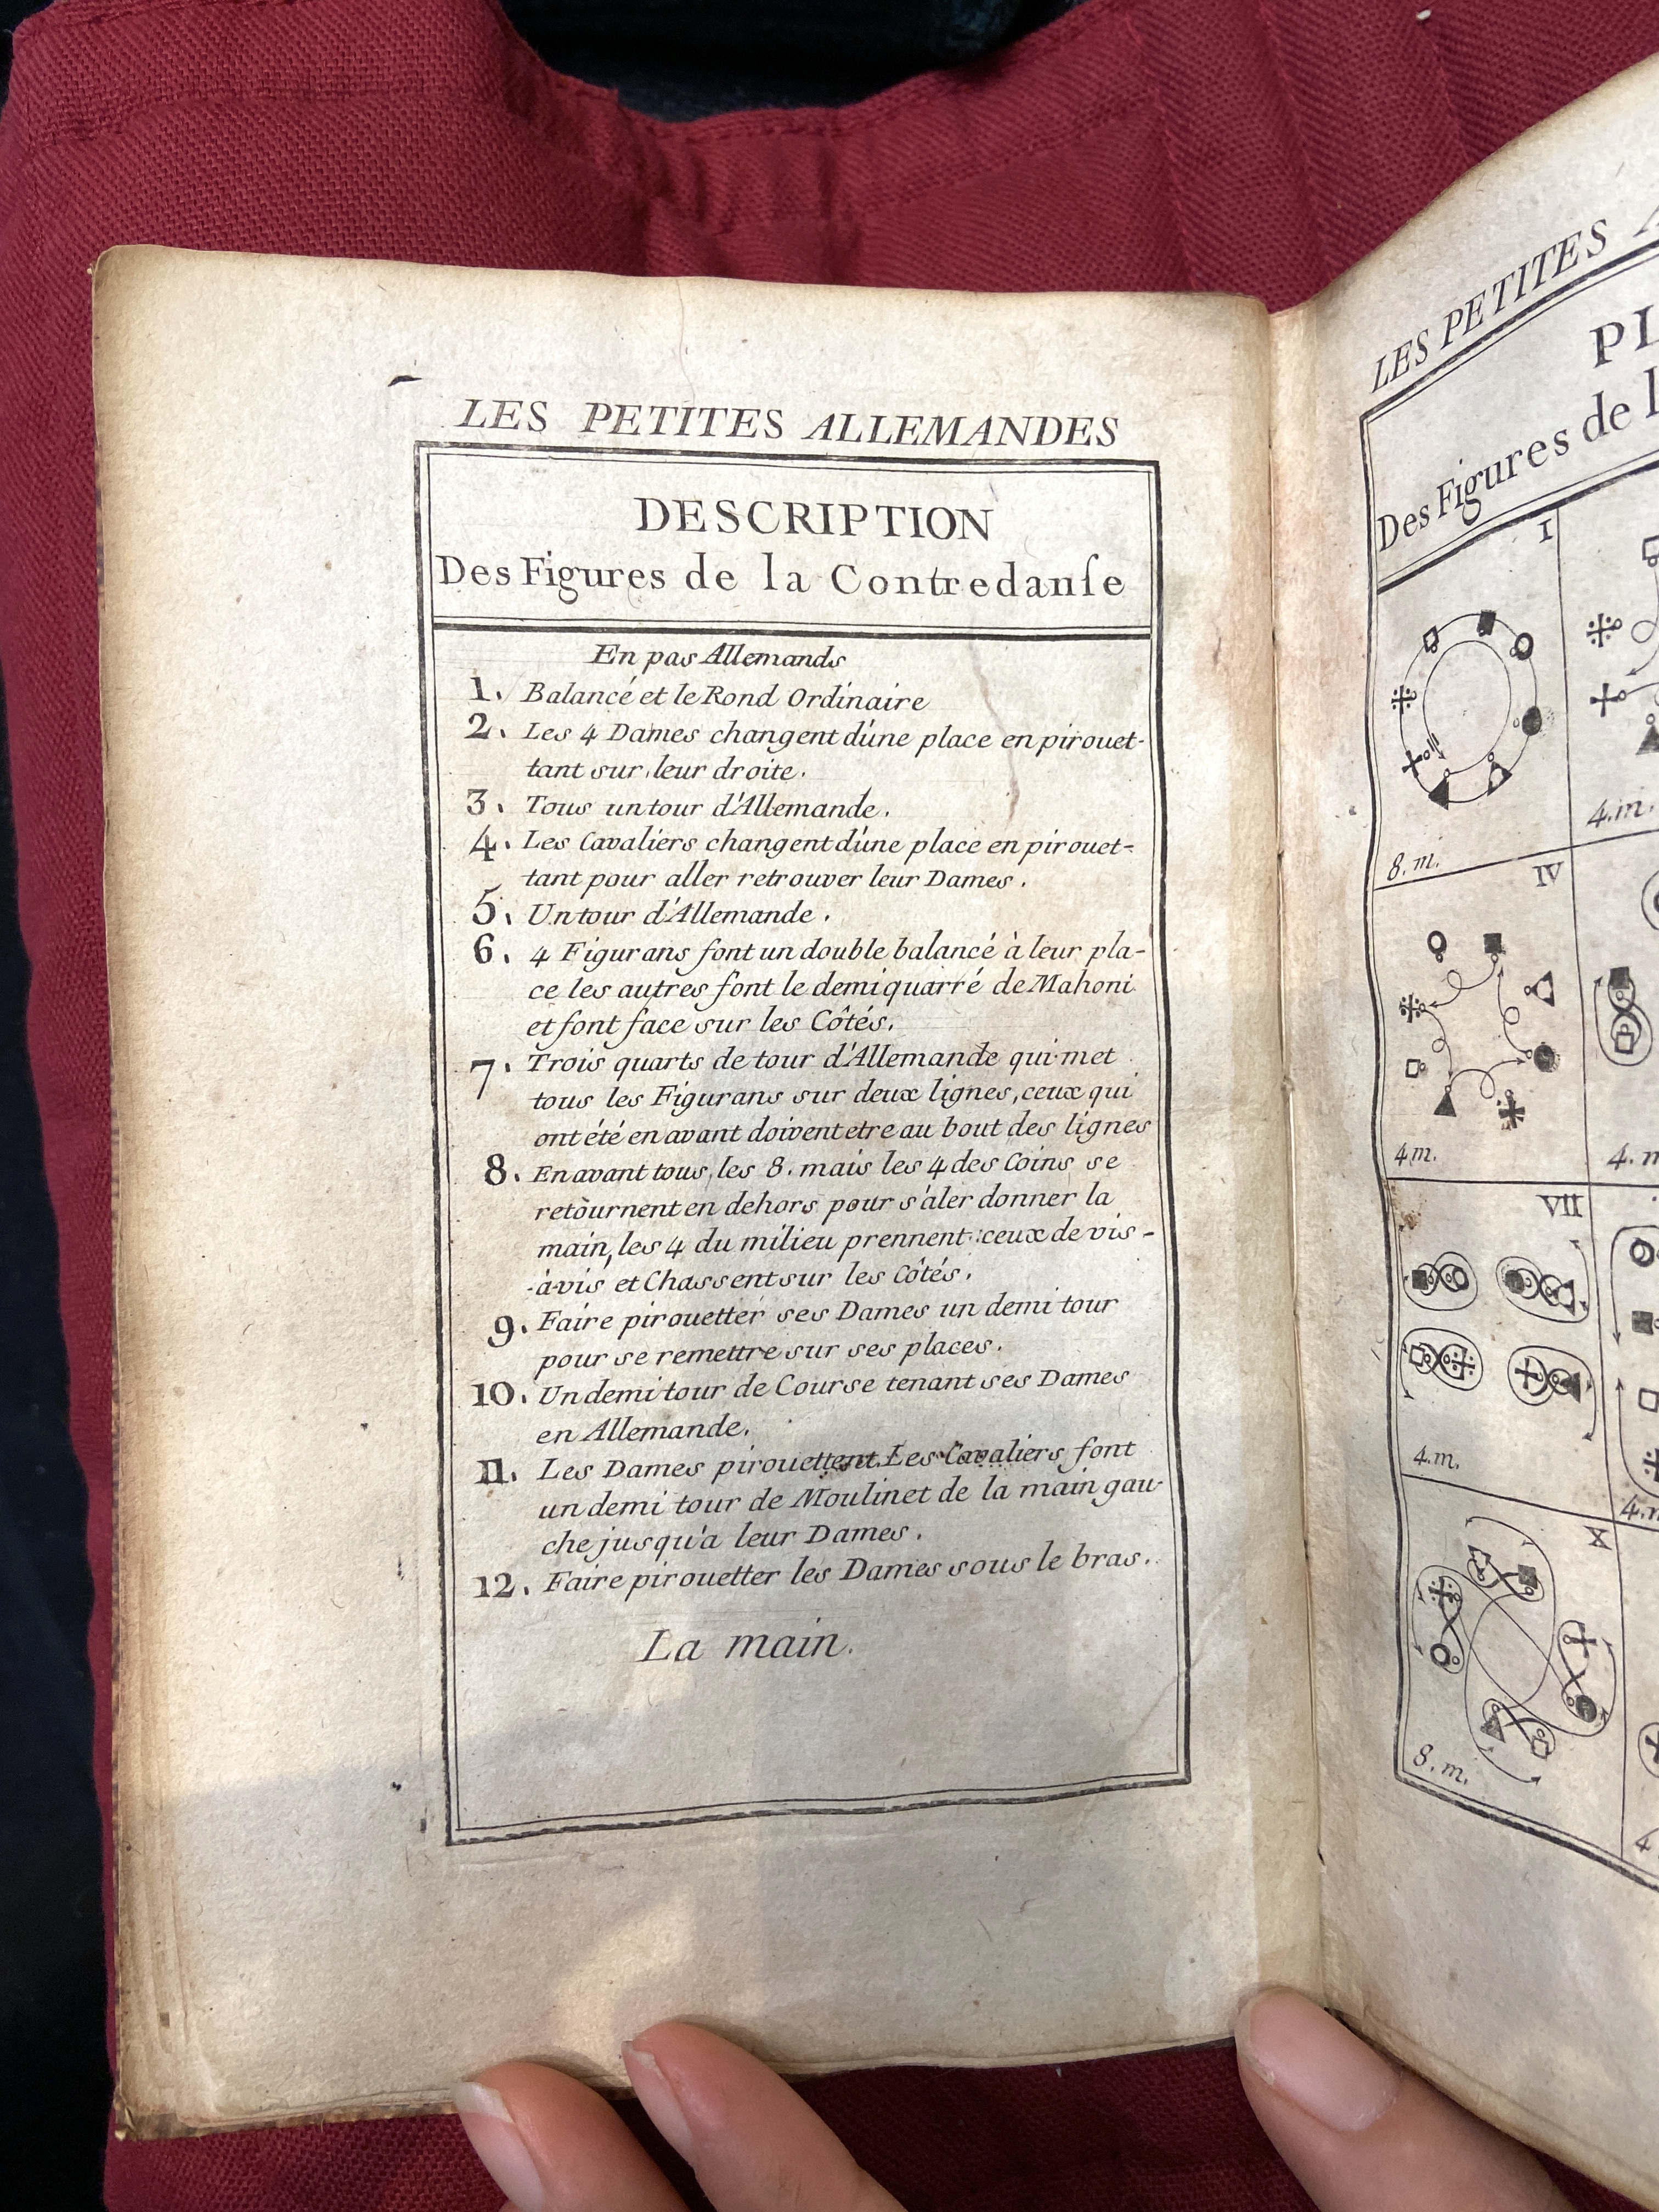 LES PETITES ALLEMANDES
DESCRIPTION
Des Figures de la Contredanſe
En pas Allemands
1. Balancé et le Rond Ordinaire
2. Les 4 Dames changent d'une place en pirouet-
tant sur leur droite.
3. Tous un tour d'Allemande.
4. Les Cavaliers changent d'une place en pirouet-
tant pour aller retrouver leur Dames.
5. Un tour d'Allemande.
6. 4 Figurans font un double balancé à leur pla-
ce les autres font le demi quarré de Mahoni
et font face sur les Côtés.
7. Trois quarts de tour d'Allemande qui met
tous les Figurans sur deux lignes, ceux qui
ont été en avant doivent etre au bout des lignes
8. En avant tous les 8. mais les 4 des Coins se
retournent en dehors pour s'aler donner la
main, les 4 du milieu prennent ceux de vis-
-à-vis et Chassent sur les Côtés.
9. Faire pirouetter ses Dames un demi tour
pour se remettre sur ses places.
10. Un demi tour de Course tenant ses Dames
en Allemande.
11. Les Dames pirouettent. Les Cavaliers font
un demi tour de Moulinet de la main gau-
che jusqu'a leur Dames.
12. Faire pirouetter les Dames sous le bras.
La main.
LES PETITES A
PL
Des Figures de l
I
8. m.
4. m.
IV
4 m.
4. m
VII
4. m.
4. m
X
8. m.
4